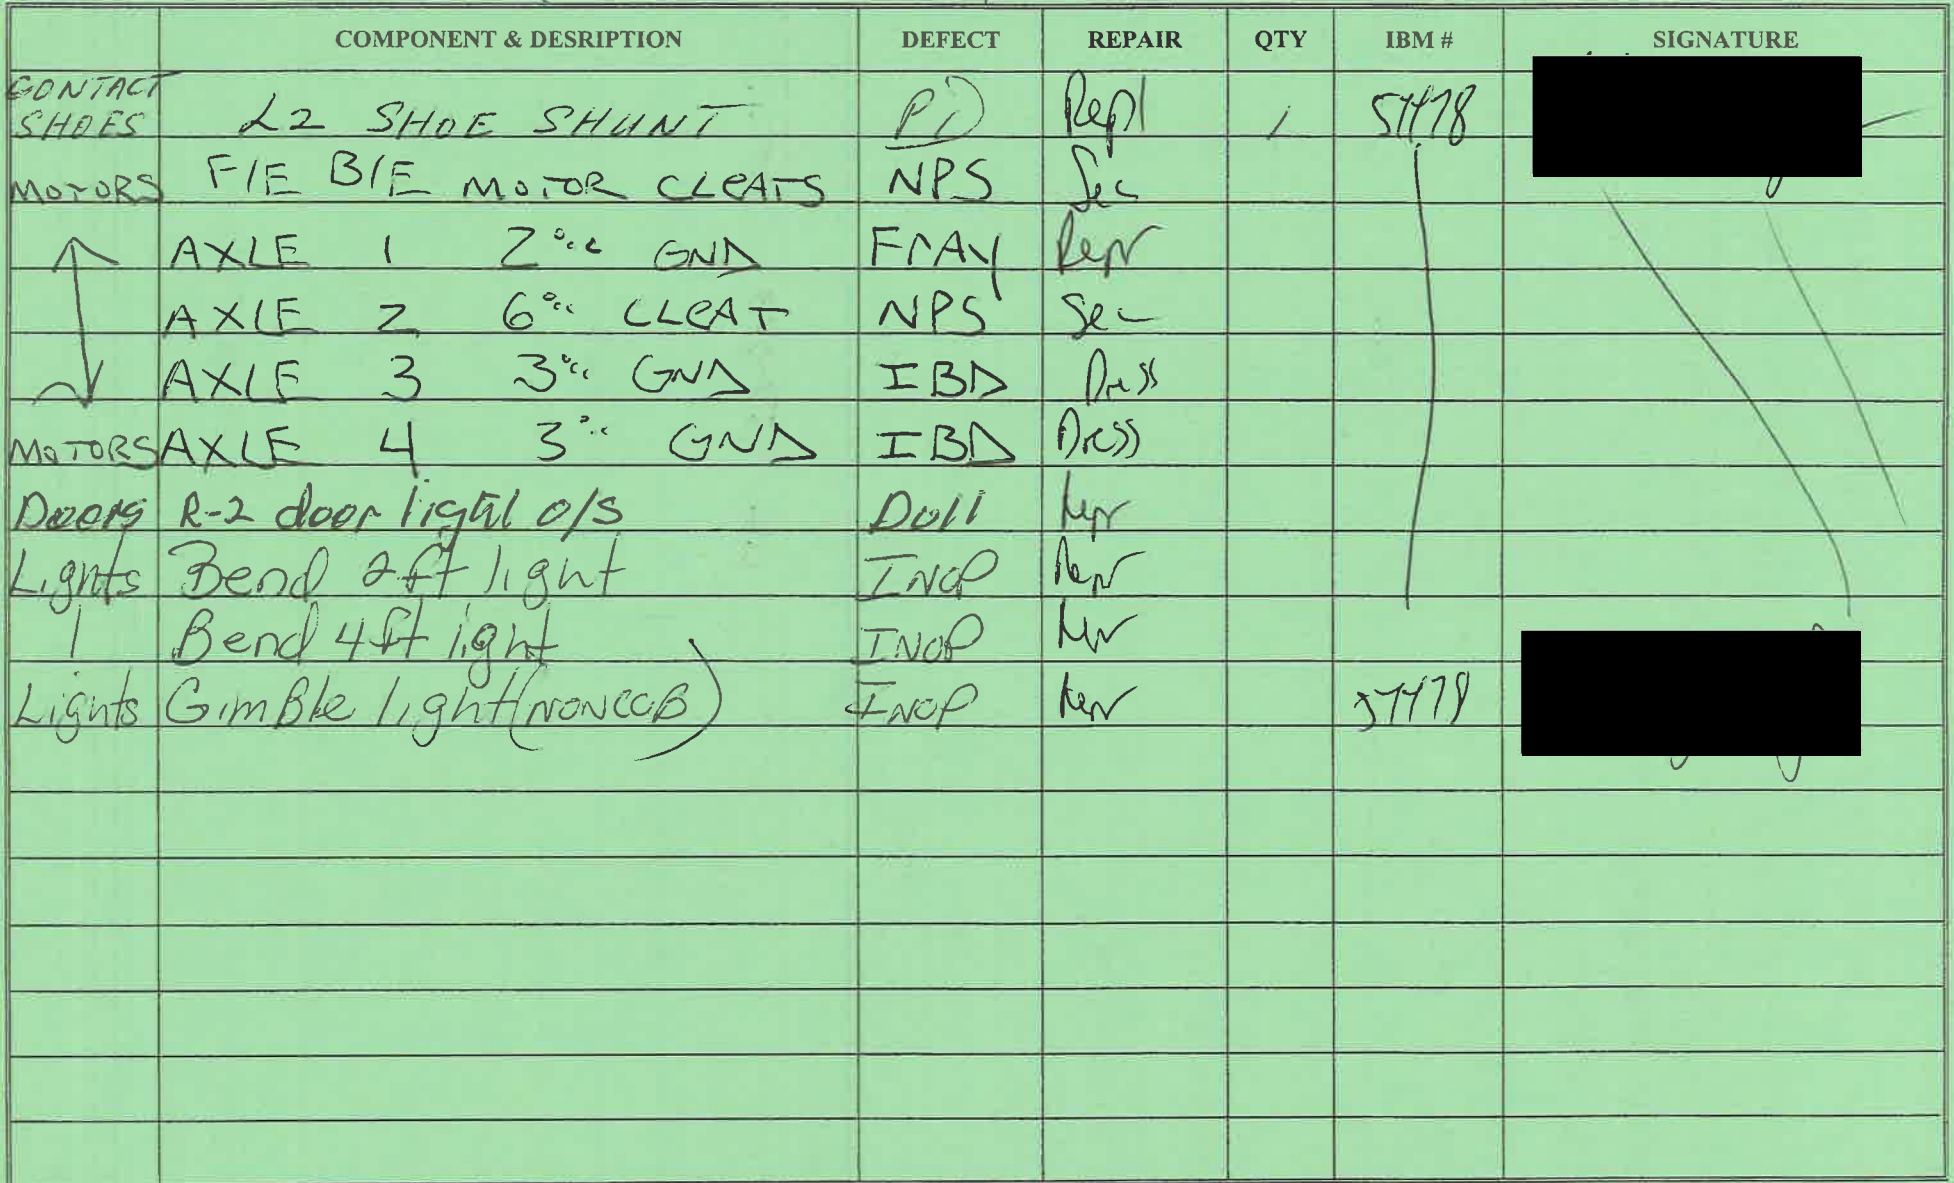 COMPONENT & DESRIPTION DEFECT REPAIR QTY IBM # SIGNATURE
CONTACT
SHOES L2 SHOE SHUNT PD Repl 1
MOTORS F/E B/E MOTOR CLEATS NPS Sec
AXLE 1 2 GND FRAY Repr
AXLE 2 6 CLEAT NPS Sec
AXLE 3 3 GND IBD Dress
MOTORS AXLE 4 3 GND IBD Dress
Doors R-2 door light o/s Dull Repr
Lights Bend 2ft light INOP Repr
Bend 4ft light INOP Repr
Lights Gimble light (NONCAB) INOP Repr